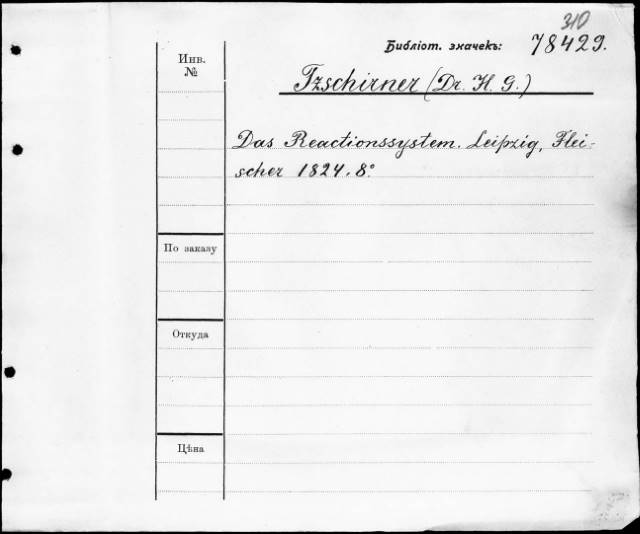 310
Библіот. значекъ: 78429.
Инв.
№
Tzschirner (Dr. H. G.)
Das Reactionssystem. Leipzig, Flei-
scher 1824. 8.°
По заказу
Откуда
Цѣна